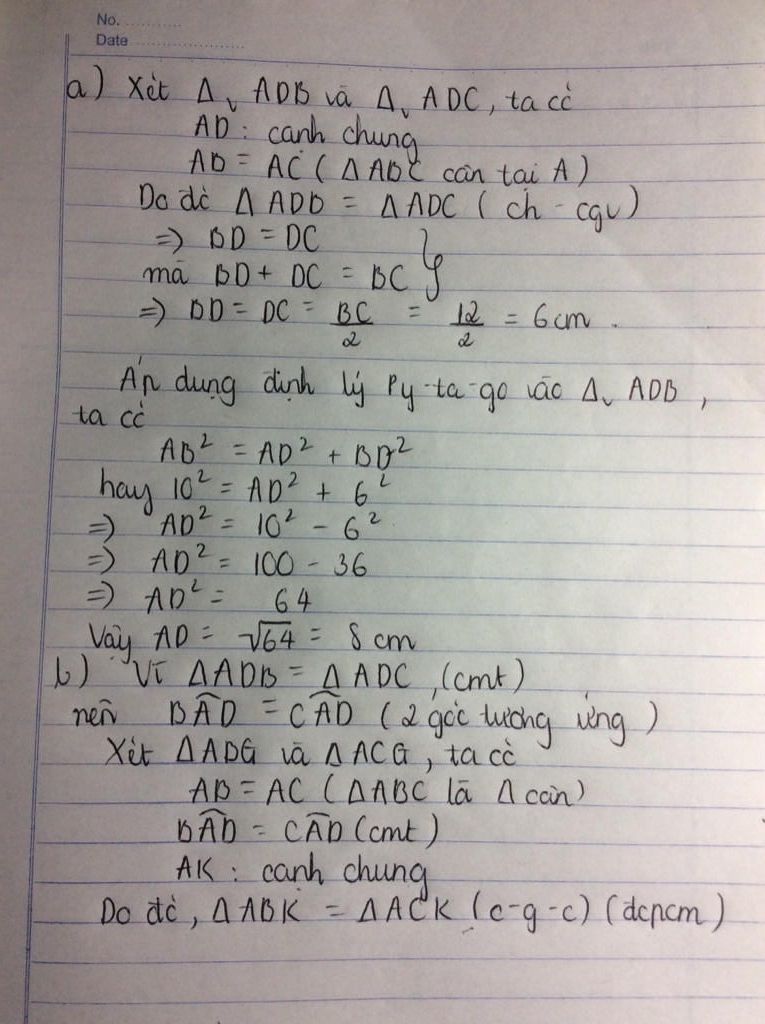 No. ............
Date ........................
a) Xét Δv ADB và Δv ADC, ta có
AD : cạnh chung
AB = AC ( ΔABC cân tại A )
Do đó ΔADB = ΔADC ( ch - cgv )
=> BD = DC
mà BD + DC = BC }
=> BD = DC = BC/2 = 12/2 = 6 cm .
Áp dụng định lý Py-ta-go vào Δv ADB ,
ta có
AB² = AD² + BD²
hay 10² = AD² + 6²
=> AD² = 10² - 6²
=> AD² = 100 - 36
=> AD² = 64
Vậy AD = √64 = 8 cm
b) Vì ΔADB = ΔADC (cmt)
nên BÂD = CÂD ( 2 góc tương ứng )
Xét ΔABG và ΔACG , ta có
AB = AC ( ΔABC là Δ cân )
BÂD = CÂD (cmt)
AK : cạnh chung
Do đó , ΔABK = ΔACK (c-g-c) (đcpcm)